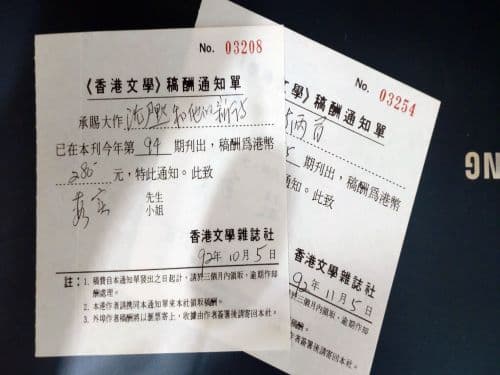 No. 03208
《香港文學》稿酬通知單
承賜大作
已在本刊今年第 94 期刊出，稿酬爲港幣
280 元，特此通知。此致
先生
小姐
香港文學雜誌社
92年10月5日
註：1. 稿費自本通知單發出之日起計，請於三個月內領取，逾期作却
酬處理。
2. 本港作者請携同本通知單來本社領取稿酬。
3. 外埠作者稿酬將以滙票寄上，收據由作者簽署後請寄回本社。
No. 03254
文學》稿酬通知單
期刊出，稿酬爲港幣
通知。此致
香港文學雜誌社
92年11月5日
三個月內領取，逾期作却
領取稿酬。
由作者簽署後請寄回本社。
NG